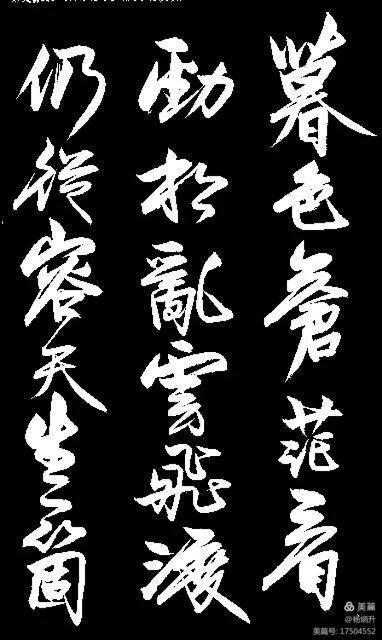 暮色蒼茫看
勁松亂雲飛渡
仍從容天生一箇
美篇
@杨炳升
美篇号: 17504552